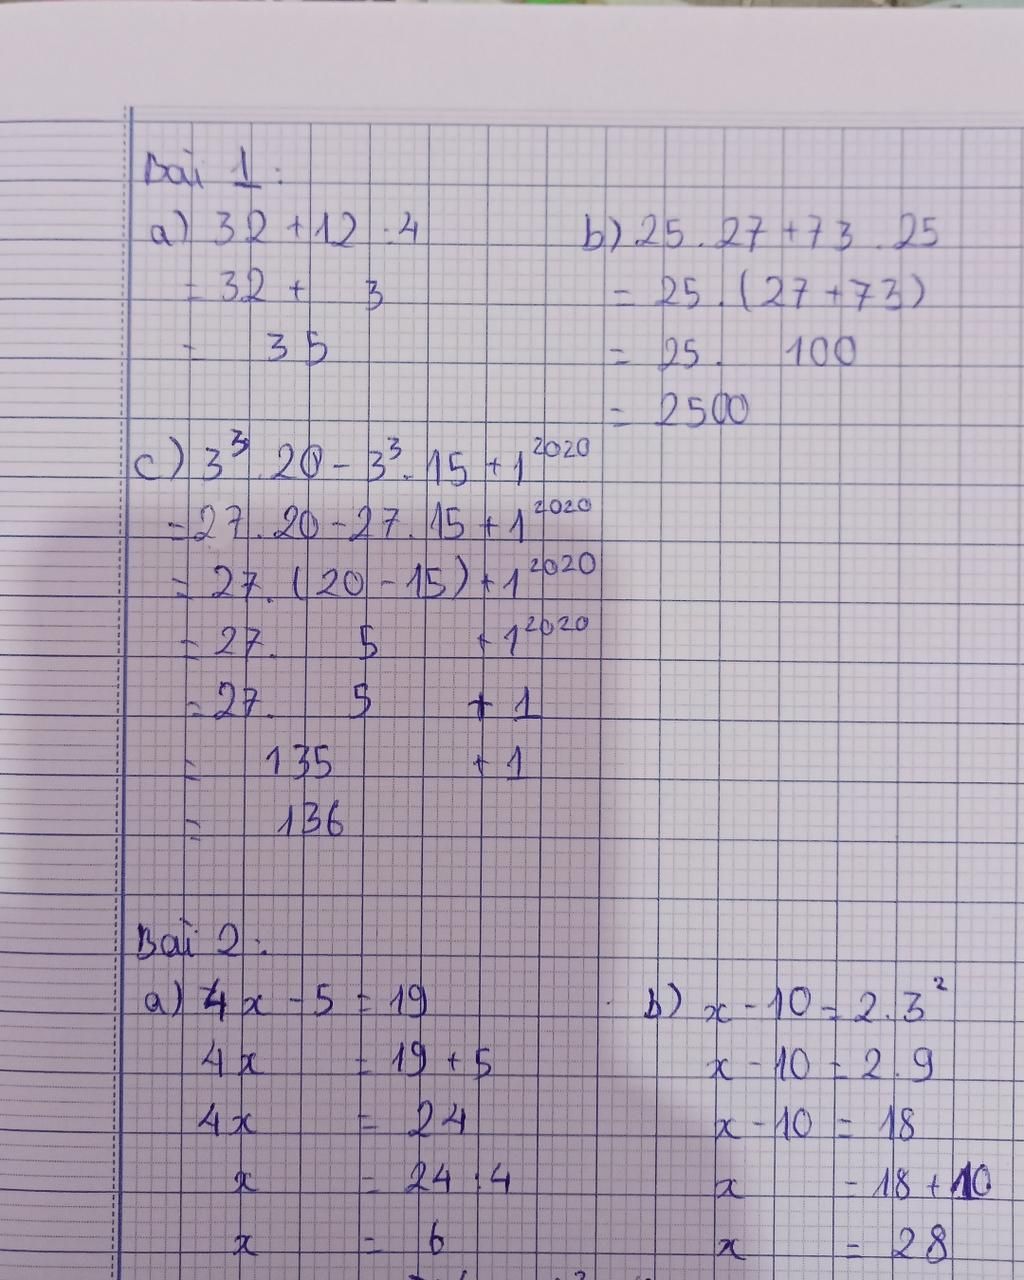 Bài 1:
a) 32 + 12 : 4
= 32 + 3
= 35
b) 25 . 27 + 73 . 25
= 25 . (27 + 73)
= 25 . 100
= 2500
c) 3³ . 20 - 3³ . 15 + 1²⁰²⁰
= 27 . 20 - 27 . 15 + 1²⁰²⁰
= 27 . (20 - 15) + 1²⁰²⁰
= 27 . 5 + 1²⁰²⁰
= 27 . 5 + 1
= 135 + 1
= 136
Bài 2:
a) 4x - 5 = 19
4x = 19 + 5
4x = 24
x = 24 : 4
x = 6
b) x - 10 = 2 . 3²
x - 10 = 2 . 9
x - 10 = 18
x = 18 + 10
x = 28